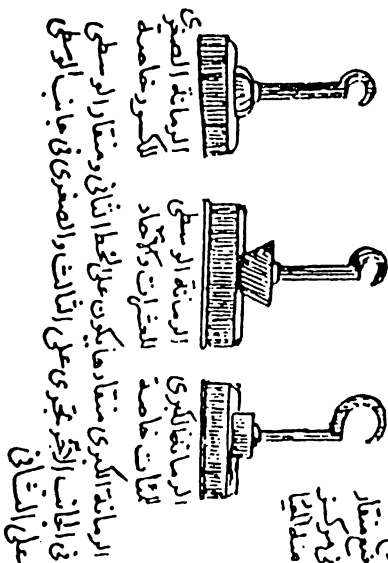 منقار
الرمانة الكبرى
للمئات خاصة
الرمانة الوسطى
للعشرات والآحاد
الرمانة الصغرى
للكسور خاصة
الرمانة الكبرى منقارها يكون على الخط الثانى ومنقار الوسطى
فى الجانب الآخر تجرى على الثالث والصغرى فى جانب الوسطى
على الثانى